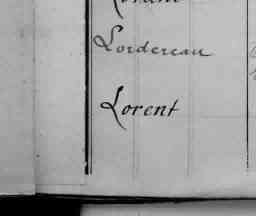 Lordereau
Lorent